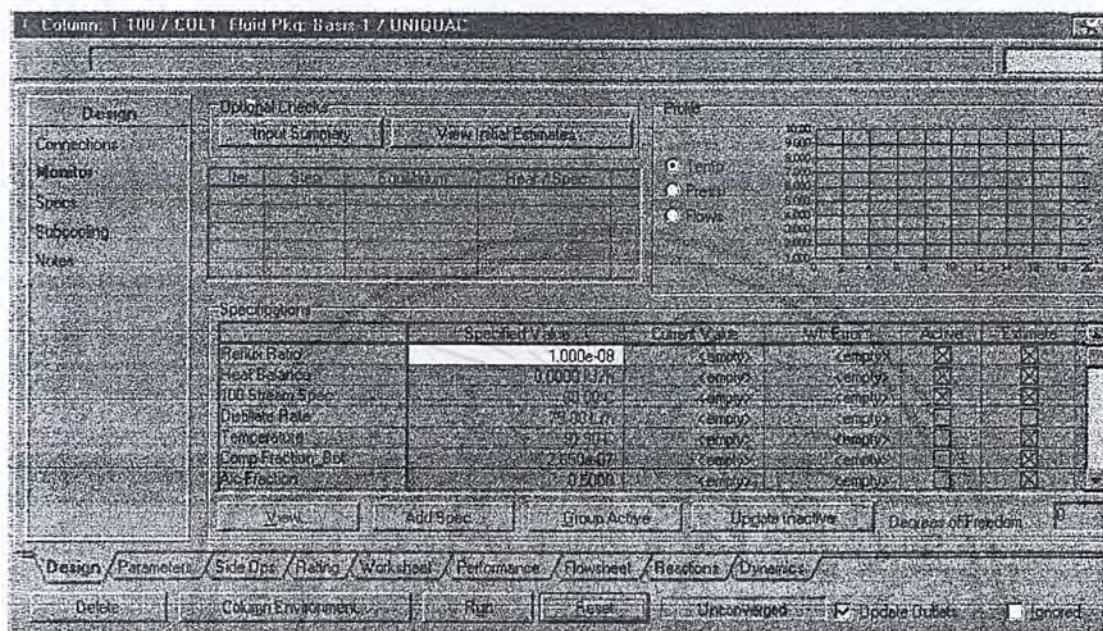 Column: T-100 / COL1 Fluid Pkg: Basis-1 / UNIQUAC
Design
Connections
Monitor
Specs
Subcooling
Notes
Optional Checks
Input Summary View Initial Estimates
Iter Step Equilibrium Heat / Spec
Profile
Temp
Press
Flows
10.00
9.000
8.000
7.000
6.000
5.000
4.000
3.000
2.000
1.000
0 2 4 6 8 10 12 14 16 18 20
Specifications
Specified Value Current Value Wt. Error Active Estimate
Reflux Ratio 1.000e-08 <empty> <empty>
Heat Balance 0.0000 kJ/h <empty> <empty>
Stream Spec <empty> <empty>
Distillate Rate <empty> <empty>
Temperature <empty> <empty>
Comp Fraction_Bot <empty> <empty>
Alc Fraction 0.5000 <empty> <empty>
View... Add Spec... Group Active Update Inactive Degrees of Freedom 0
Design Parameters Side Ops Rating Worksheet Performance Flowsheet Reactions Dynamics
Delete Column Environment... Run Reset Unconverged Update Outlets Ignored